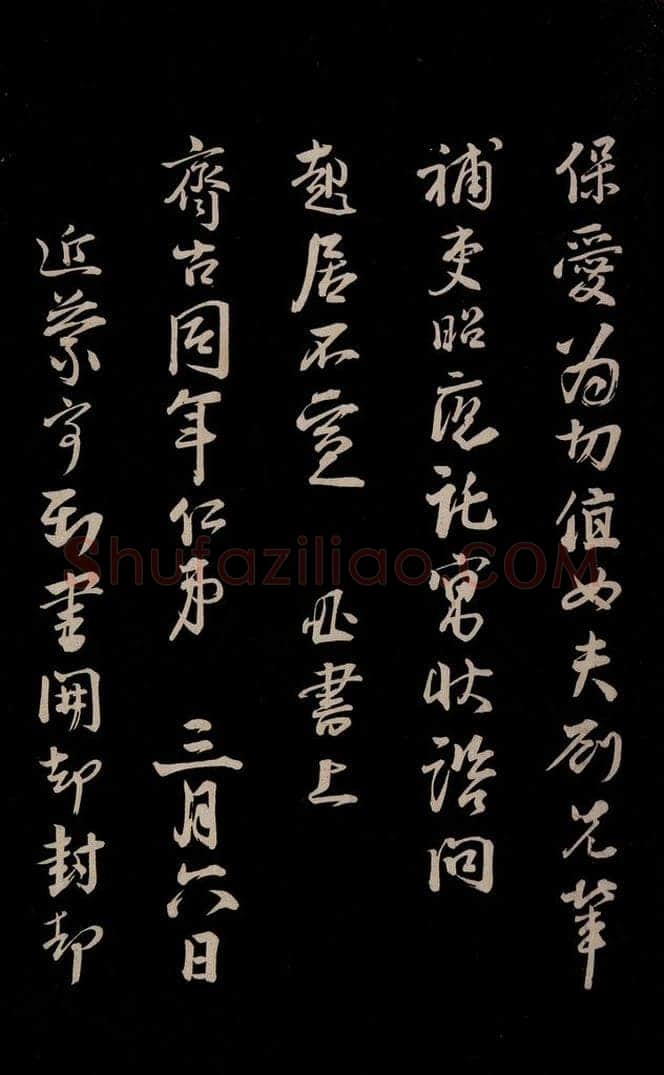 保愛为切值女夫劉兄
補吏昭應託寓狀諮問
起居不宣 書上
齊古同年仁弟 三月六日
近蒙寄到書開却封却
Shufaziliao.COM